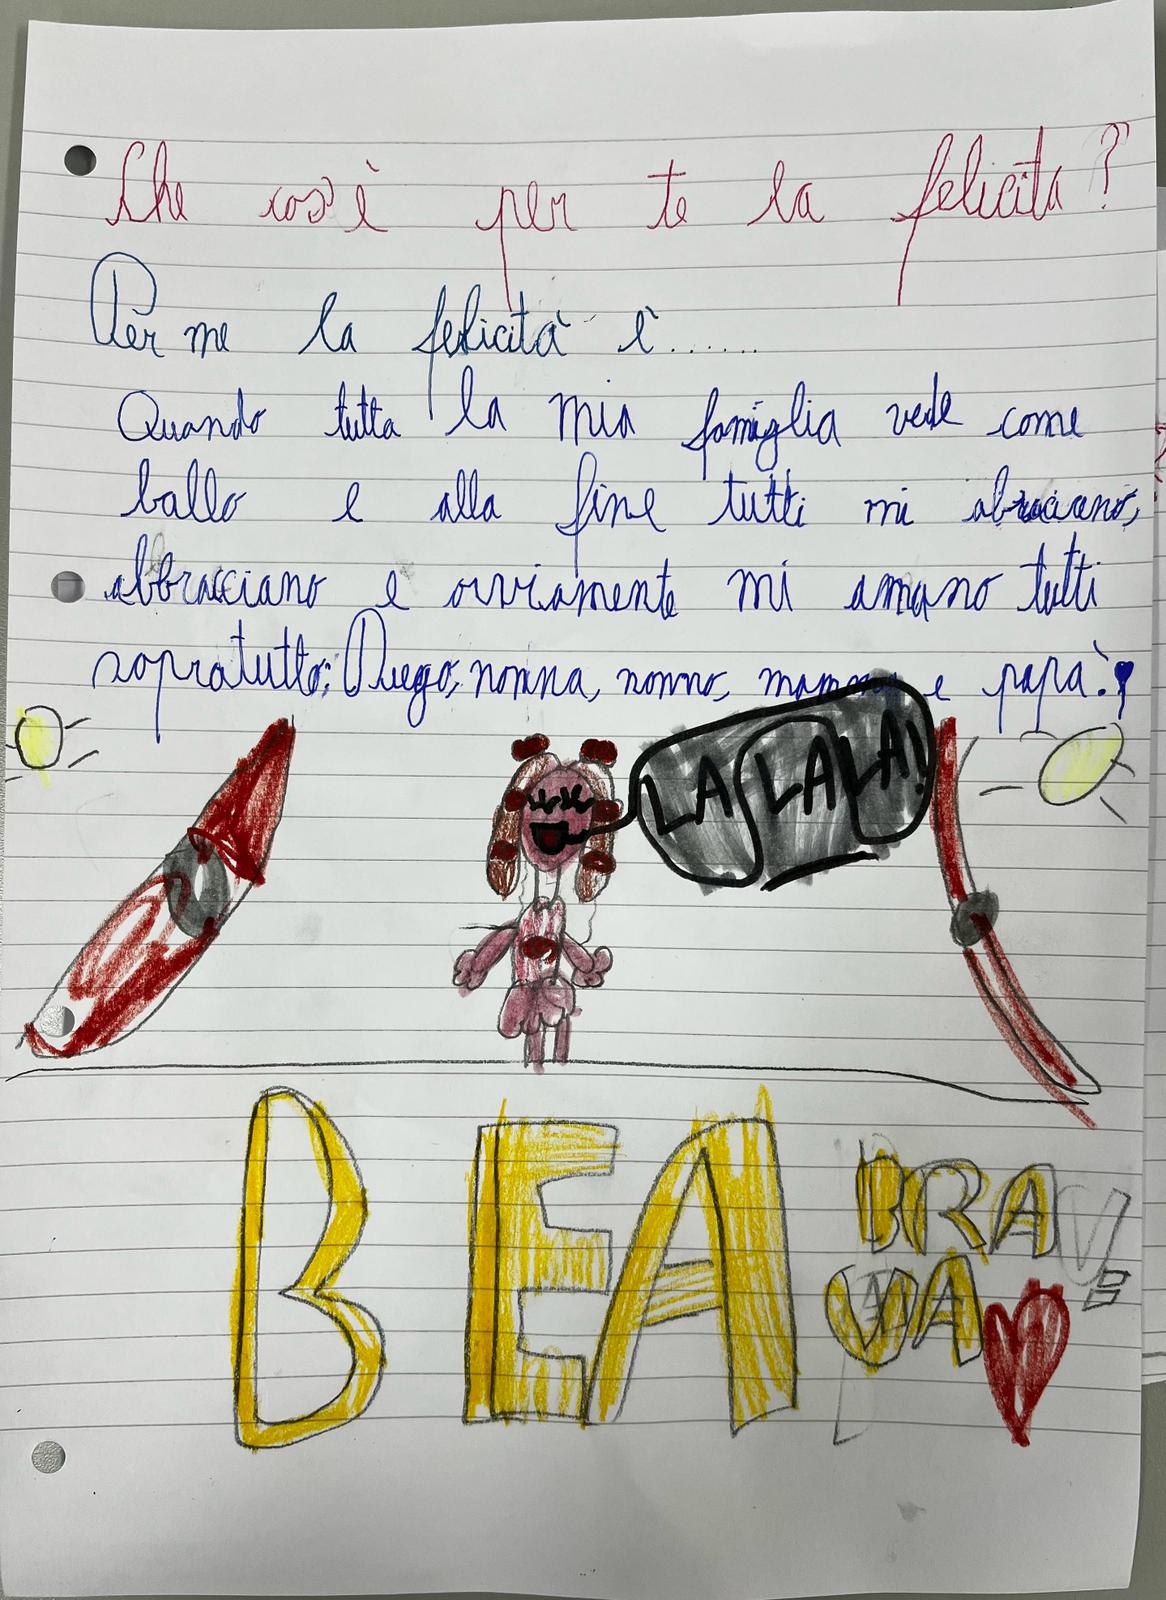 Che cos'è per te la felicità?
Per me la felicità è......
Quando tutta la mia famiglia vede come
ballo e alla fine tutti mi abracciano,
abbracciano e ovviamente mi amano tutti
sopratutto: Diego, nonna, nonno, mamma e papà!
LA LA LA!
BEA
BRA
VA